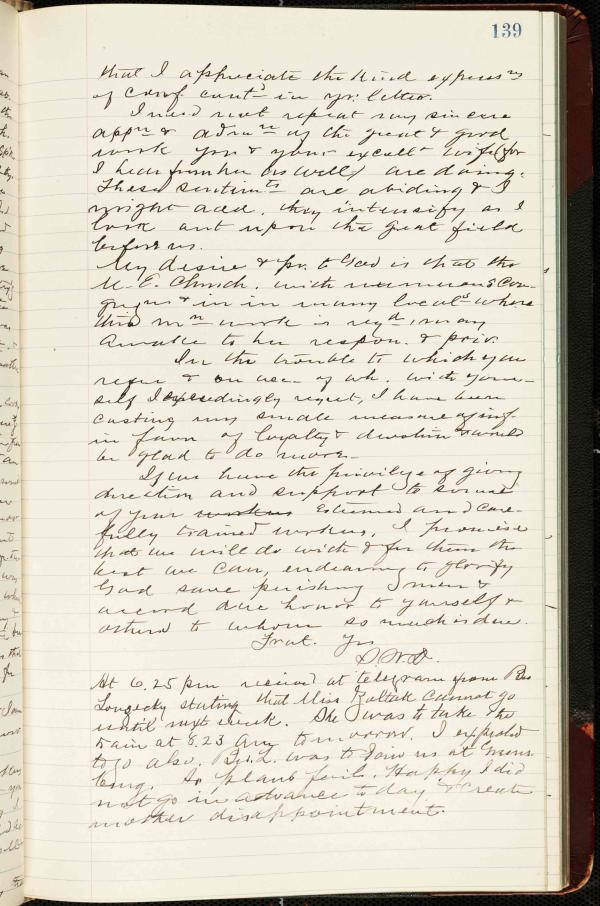 139
that I appreciate the kind express ns
of conf. cont d in yr. letter.
I need not repeat my sincere
app n & adm n of the great & good
work you & your excell t wife (for
I hear from her as well) are doing.
These sentim ts are abiding & I
might add, they intensify as I
look out upon the great field
before us.
My desire & pr. to God is that the
M. E. Church, with numerous con-
& in in many local s where
this m n work is req d, may
awake to her respon. & priv.
In the trouble to which you
refer & on acc. of wh. with your-
self I exceedingly regret, I have been
casting my small measure of inf.
in favor of loyalty & devotion & would
be glad to do more.
If we have the privilege of giving
direction and support to some
of your workers esteemed and care-
fully trained workers, I promise
that we will do with & for them the
best we can, endeavoring to glorify
God save perishing men &
accord due honor to yourself &
others to whom so much is due.
Frat. Yrs
At 6.25 pm received at telegram from Bro
stating that Miss cannot go
until next week. She was to take the
train at 8.23 am tomorrow. I expected
to go also. Bro. L. was to join us at
So plans fail. Happy I did
not go in advance to day & create
another disappointment.